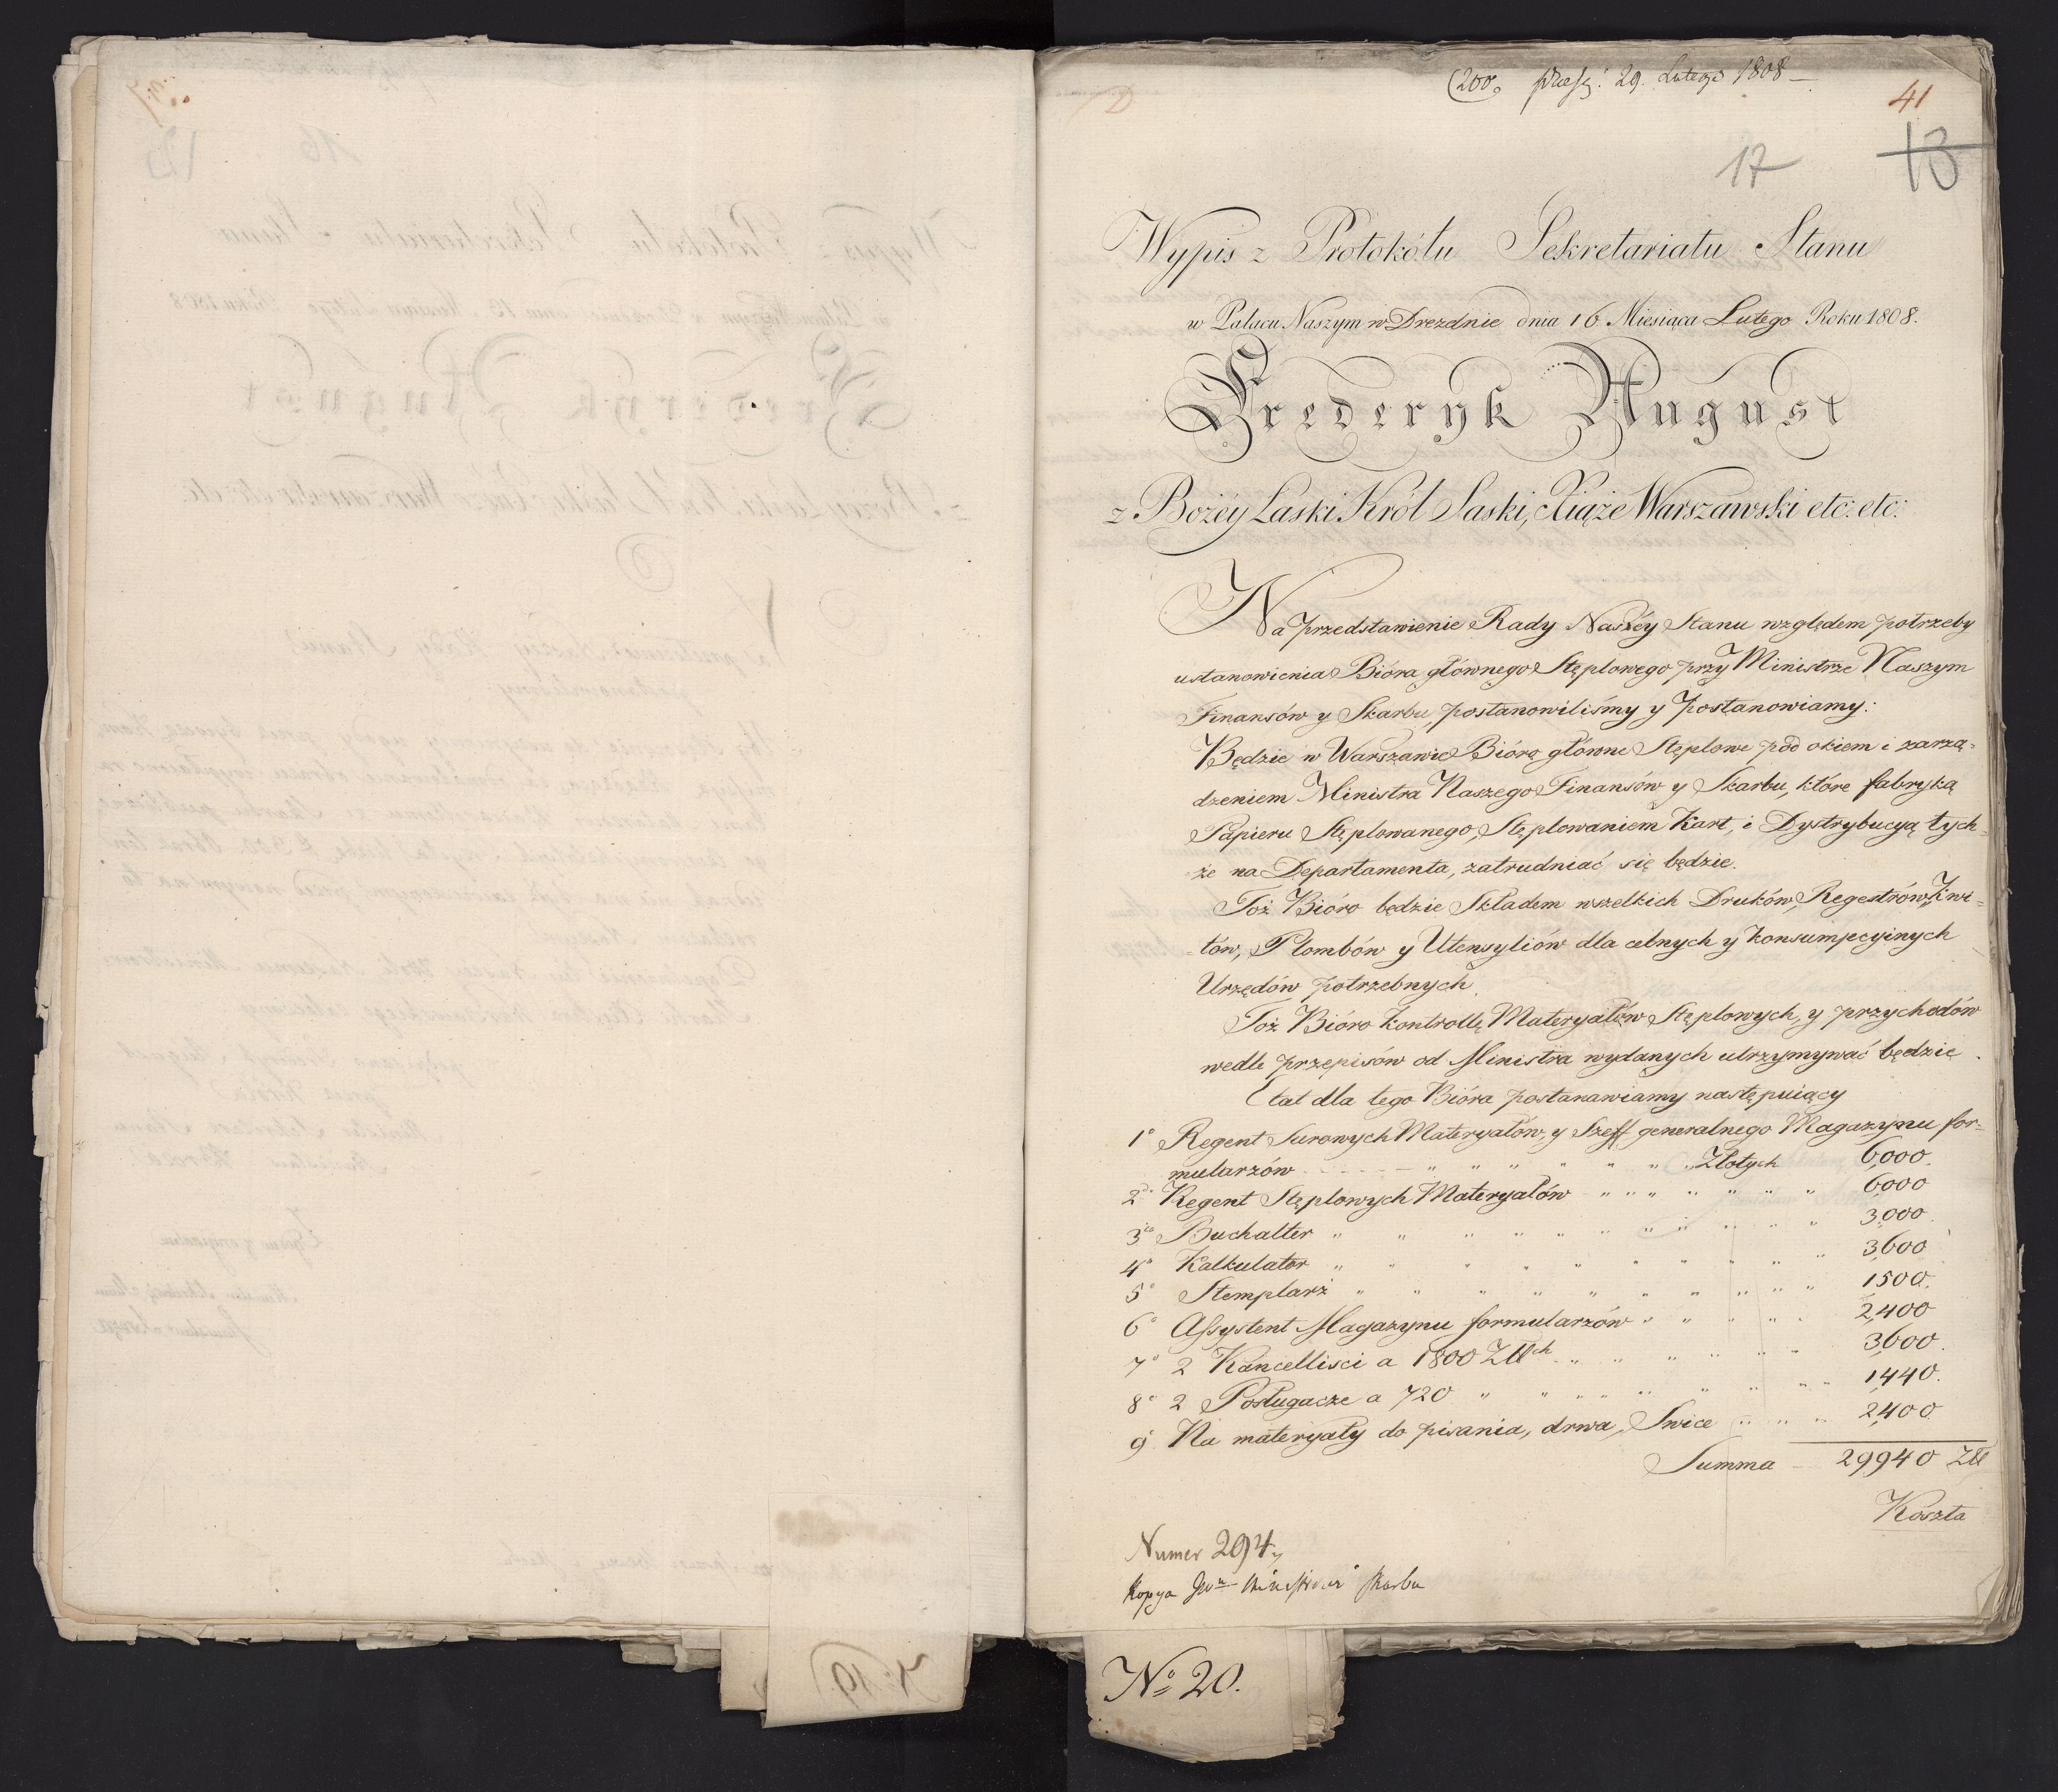 (200. præs: 29. Lutego 1808 —
41
17
13
Wypis z Protokółu Sekretariatu Stanu
w Pałacu Naszym w Dreznie dnia 16 Miesiąca Lutego Roku 1808.
Frederyk August
z Bożéy Łaski Król Saski, Xiąże Warszawski etc: etc:
Na przedstawienie Rady Naszéy Stanu względem potrzeby
ustanowienia Bióra głównego Stęplowego przy Ministrze Naszym
Finansów y Skarbu, postanowiliśmy y postanowiamy:
Będzie w Warszawie Bióro główne Stęplowe pod okiem i zarzą-
dzeniem Ministra Naszego Finansów y Skarbu, które fabryką
Papieru Stęplowanego, Stęplowaniem Kart, i Dystrybucyą tych-
że na Departamenta, zatrudniać się będzie.
Toż Bióro będzie Składem wszelkich Druków, Regestrów, Kwi-
tów, Plombów y Utensyliów dla celnych y konsumpcyinych
Urzędów potrzebnych.
Toż Bióro kontrollę Materyałów Stęplowych, y przychodów
wedle przepisów od Ministra wydanych utrzymywać będzie.
Etat dla tego Bióra postanawiamy następuiący
1° Regent Surowych Materyałów, y Szeff generalnego Magazynu for-
mularzów - - - - - " " " " " " " Złotych 6,000.
2do Regent Stęplowych Materyałów " " " " " " " 6000
3io Buchalter " " " " " " " " " " " 3,000.
4o Kalkulator " " " " " " " " " " " 3,600
5° Stemplarz " " " " " " " " " " 1500.
6° Assystent Magazynu formularzów " " " " " 2,400
7° 2 Kancellisci a 1800 Złłch " " " " " " " 3600.
8° 2 Posługacze a 720 " " " " " " " " " 1440.
9° Na materyały do pisania, drwa, Swice " " " 2,400
Summa — 29940 Złł
Koszta
Numer 294.
Kopya Skarbu
No 20.
No 19